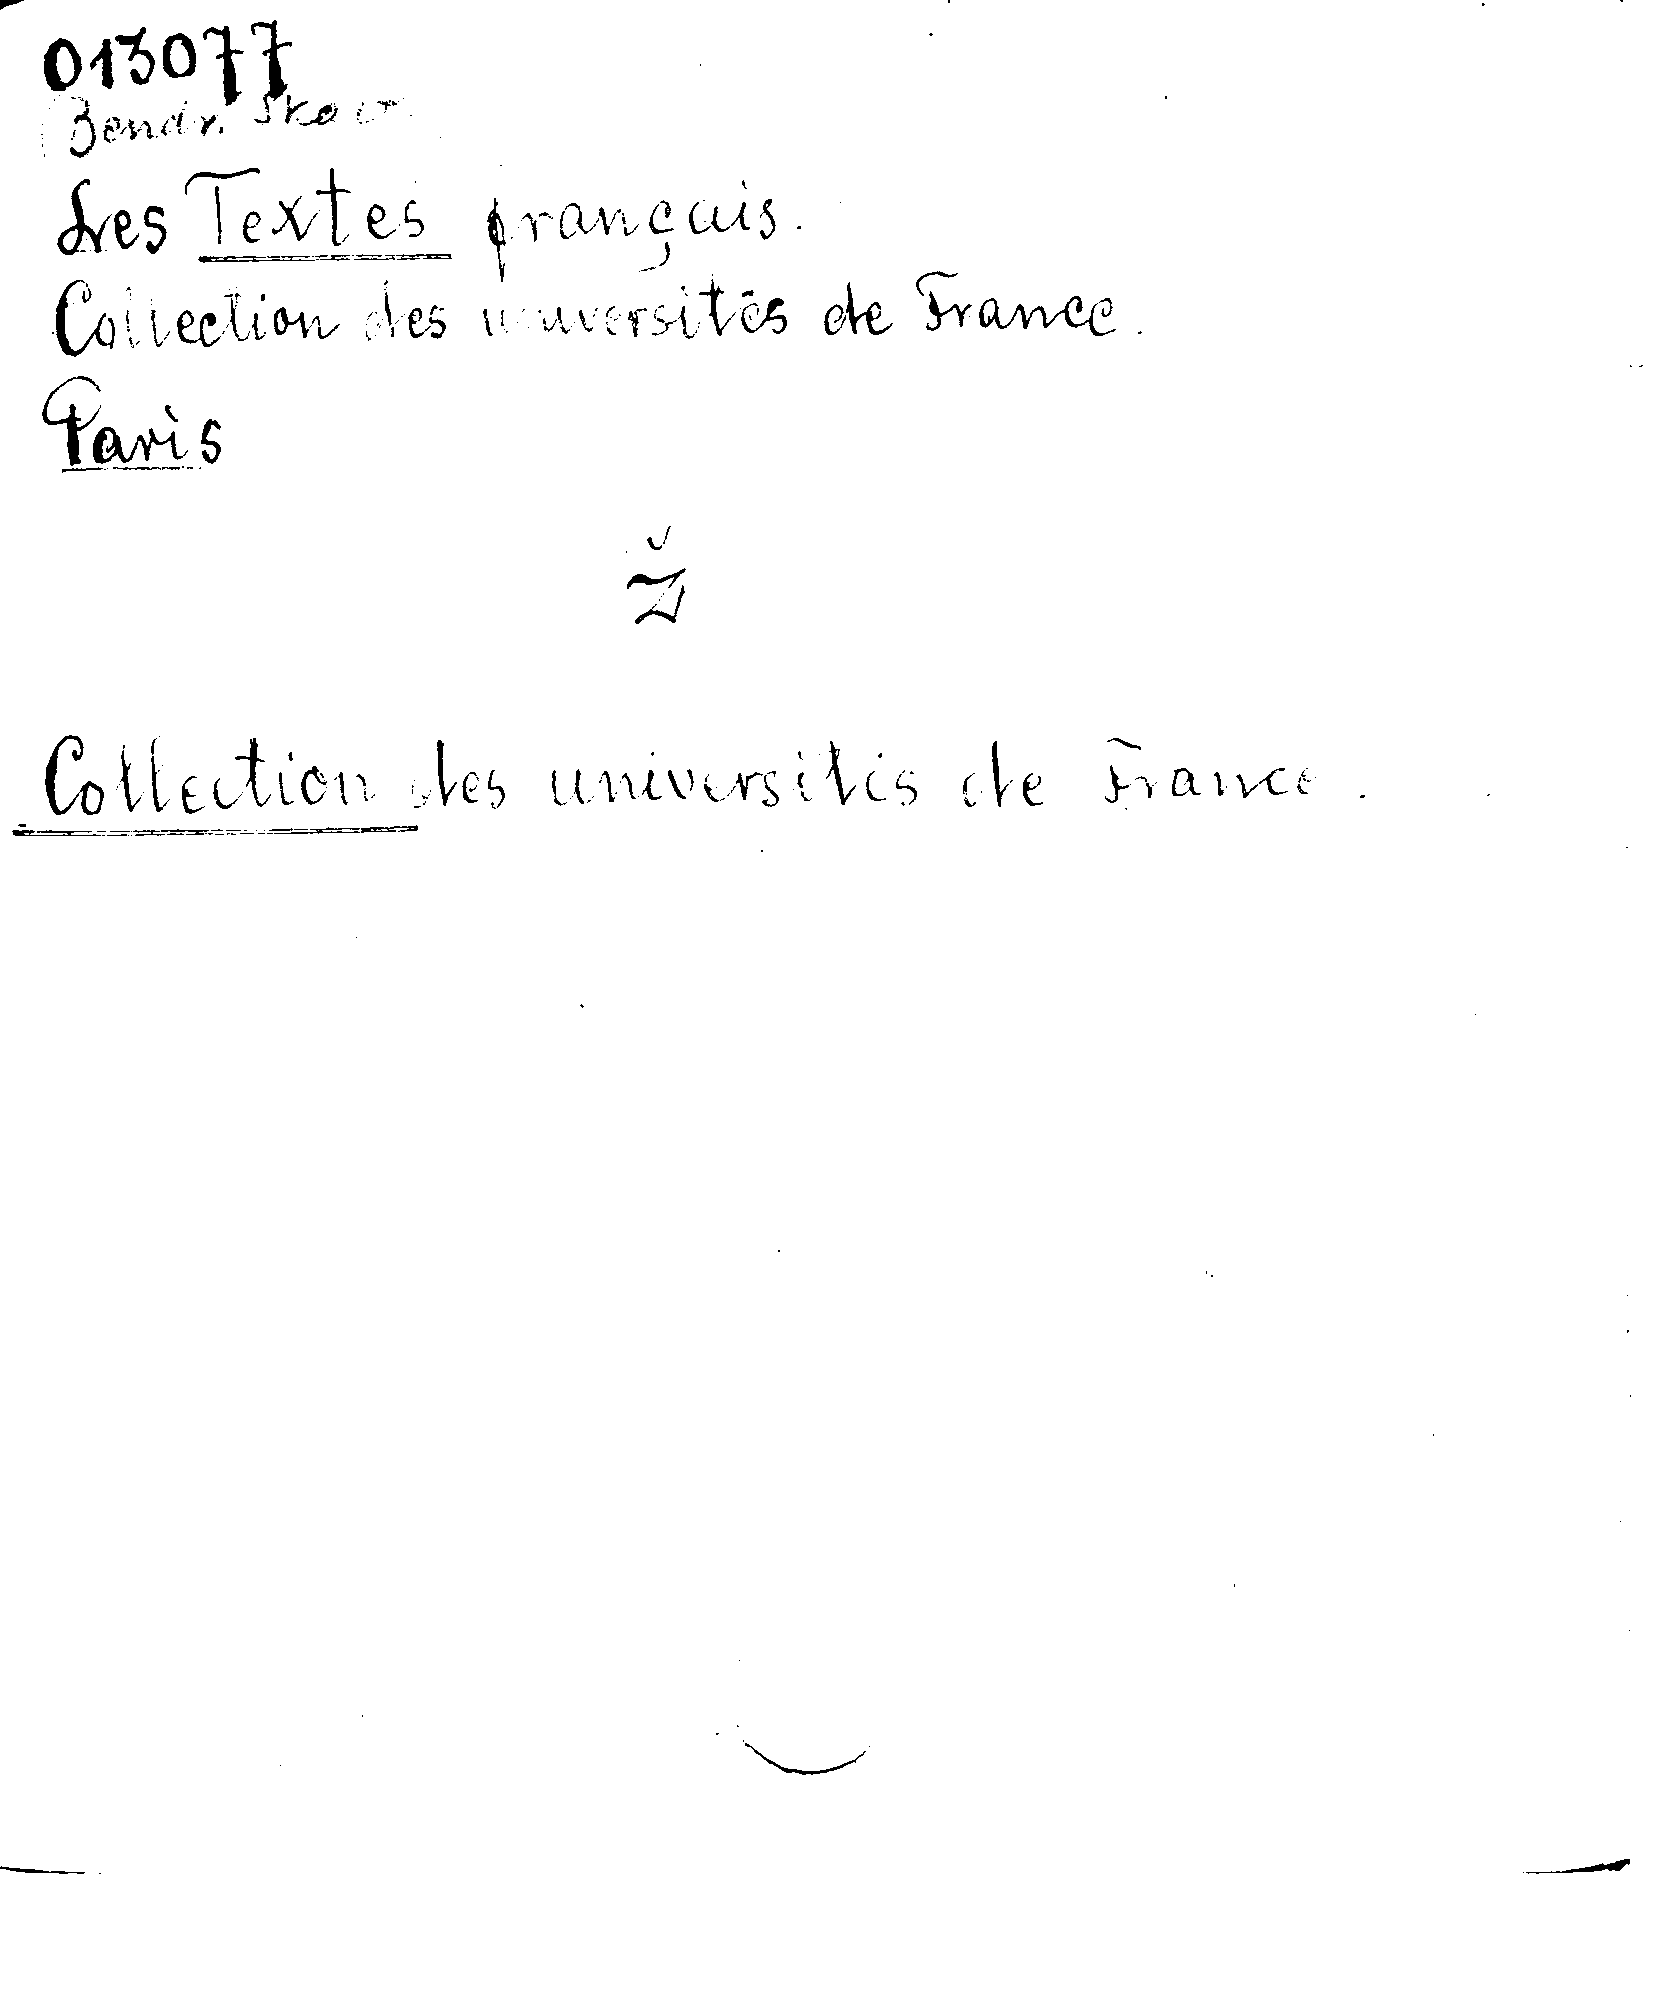 013077
Bendr. Sko
Les Textes français.
Collection des universités de France.
Paris
Ž
Collection des universités de France.